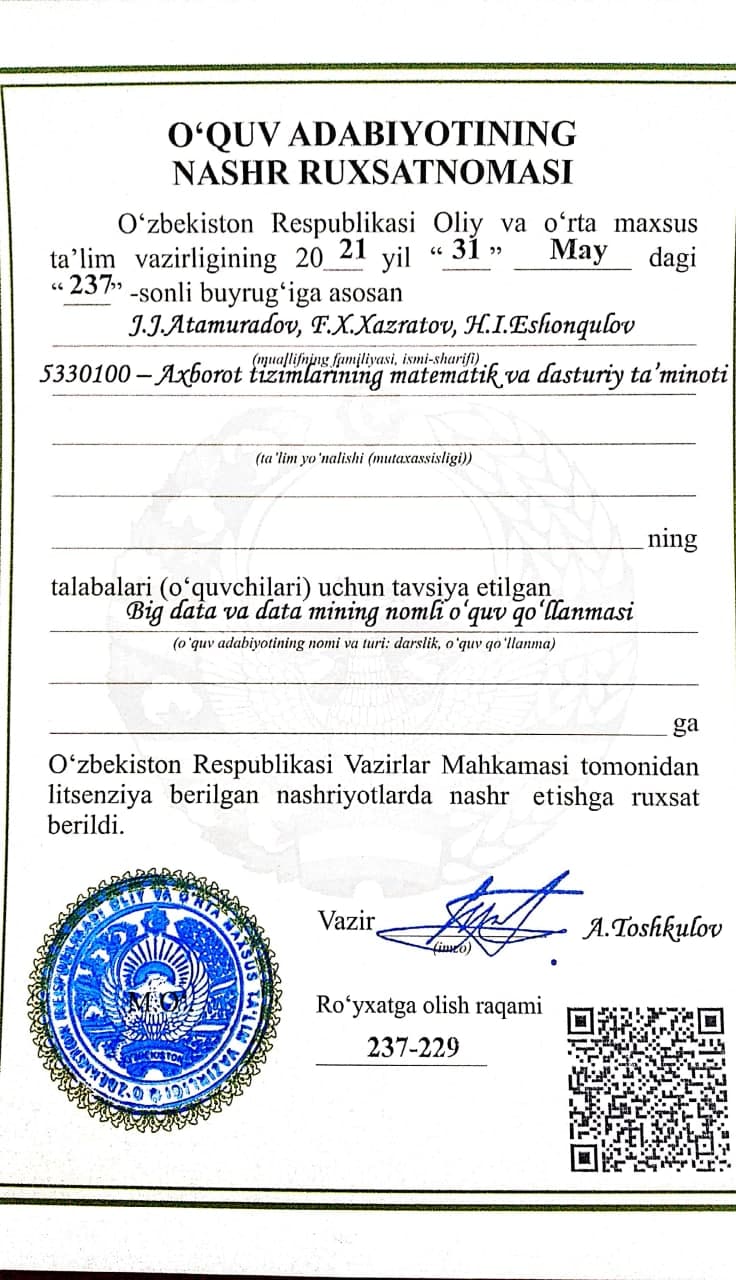 O‘QUV ADABIYOTINING
NASHR RUXSATNOMASI
O‘zbekiston Respublikasi Oliy va o‘rta maxsus
ta’lim vazirligining 20 21 yil “ 31 ” May dagi
“ 237” -sonli buyrug‘iga asosan
J.J.Atamuradov, F.X.Xazratov, H.I.Eshonqulov
(muallifning familiyasi, ismi-sharifi)
5330100 – Axborot tizimlarining matematik va dasturiy ta’minoti
(ta’lim yo‘nalishi (mutaxassisligi))
ning
talabalari (o‘quvchilari) uchun tavsiya etilgan
Big data va data mining nomli o‘quv qo‘llanmasi
(o‘quv adabiyotining nomi va turi: darslik, o‘quv qo‘llanma)
ga
O‘zbekiston Respublikasi Vazirlar Mahkamasi tomonidan
litsenziya berilgan nashriyotlarda nashr etishga ruxsat
berildi.
Vazir
(imzo)
A.Toshkulov
M.O‘
Ro‘yxatga olish raqami
237-229